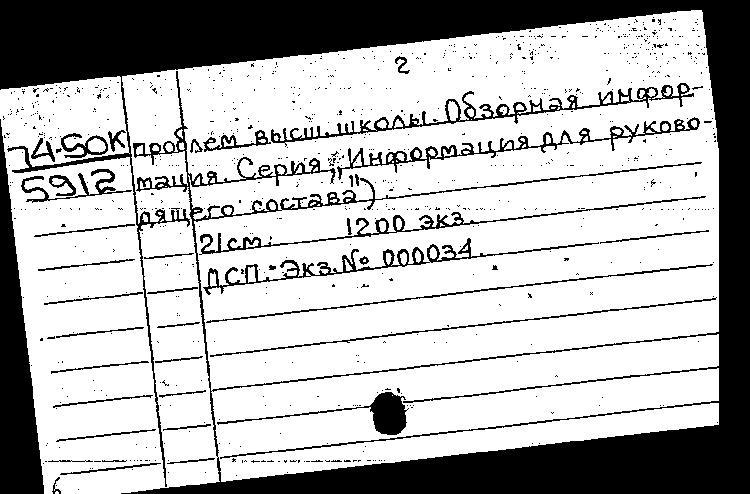 2
74-50К
5912
проблем высш. школы. Обзорная инфор-
мация. Серия „Информация для руково-
дящего состава")
21см. 1200 экз.
ДСП.- Экз. № 000034.